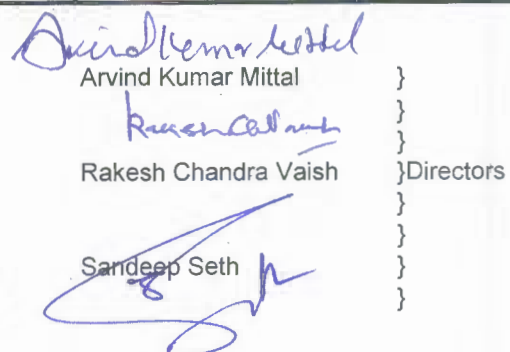 Arvind Kumar Mittal
Arvind Kumar Mittal }
}
}
Rakesh Chandra Vaish }Directors
}
}
Sandeep Seth }
}